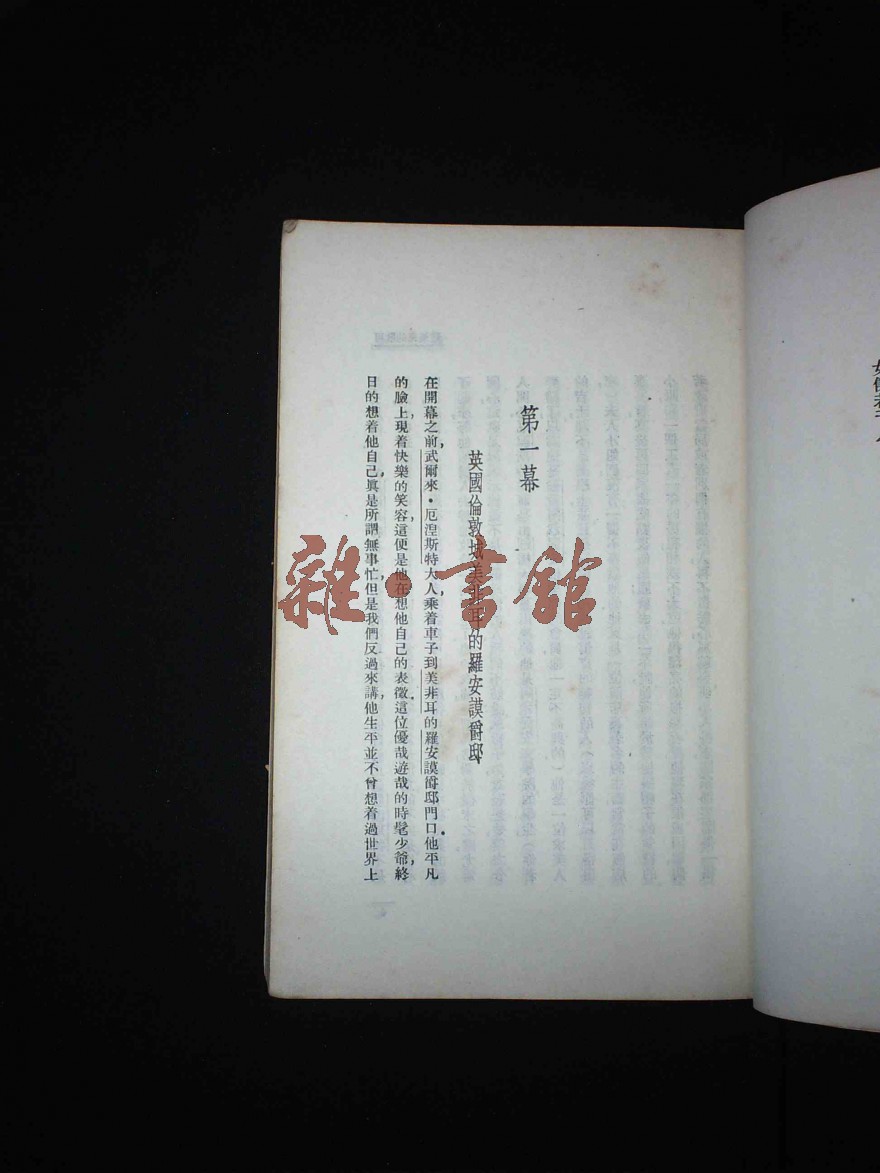 第一幕
英國倫敦城美非耳的羅安謨爵邸
在開幕之前，武爾來・厄涅斯特大人，乘着車子到美非耳的羅安謨爵邸門口．他平凡
的臉上，現着快樂的笑容，這便是他在想他自己的表徵．這位優哉遊哉的時髦少爺，終
日的想着他自己，眞是所謂無事忙，但是我們反過來講，他生平並不曾想着過世界上
雜・書館